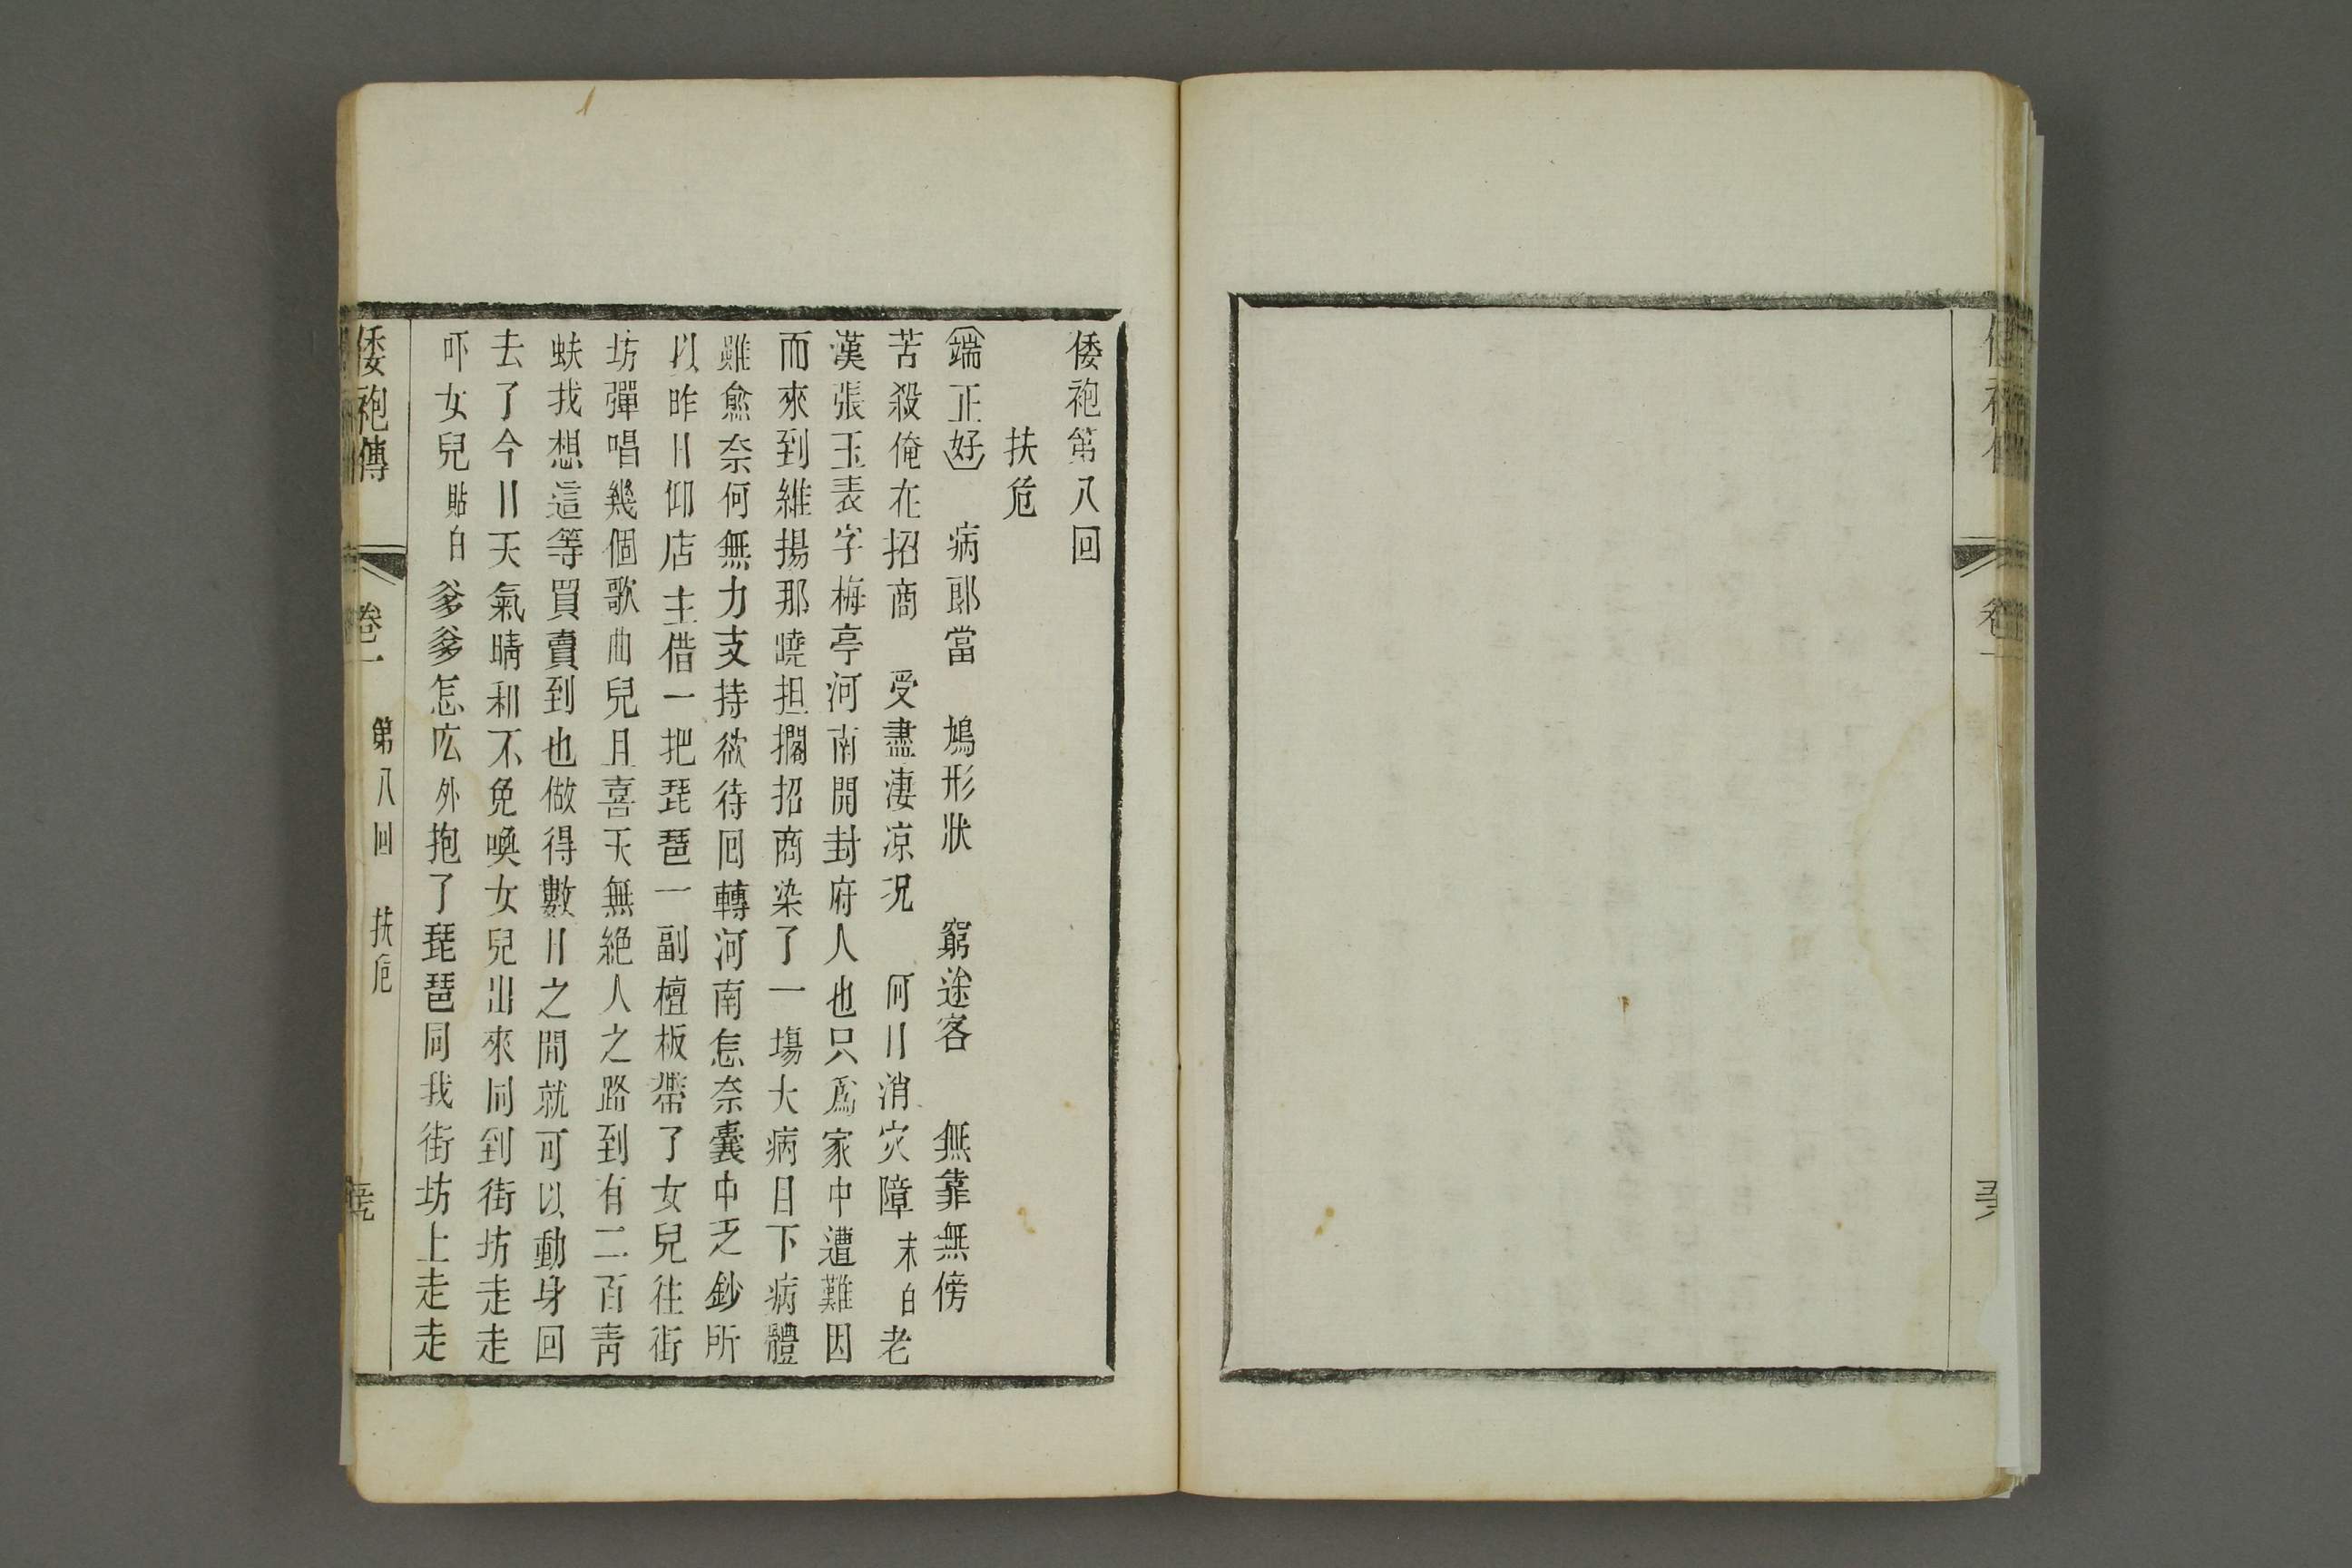 倭袍第八回
扶危
端正好 病郎當 鳩形狀 窮途客 無靠無傍
苦殺俺在招商 受盡淒凉况 何日消灾障末白老
漢張玉表字梅亭河南開封府人也只爲家中遭難因
而來到維揚那曉担擱招商染了一塲大病日下病體
雖愈奈何無力支持欲待回轉河南怎奈囊中乏鈔所
以昨日仰店主借一把琵琶一副檀板帶了女兒往街
坊彈唱幾個歌曲兒且喜天無絶人之路到有二百靑
蚨我想這等買賣到也做得數日之間就可以動身回
去了今日天氣晴和不免喚女兒出來同到街坊走走
吓女兒貼白爹爹怎庅外抱了琵琶同我街坊上走走
倭袍傳 卷一 第八回 扶危
卷一